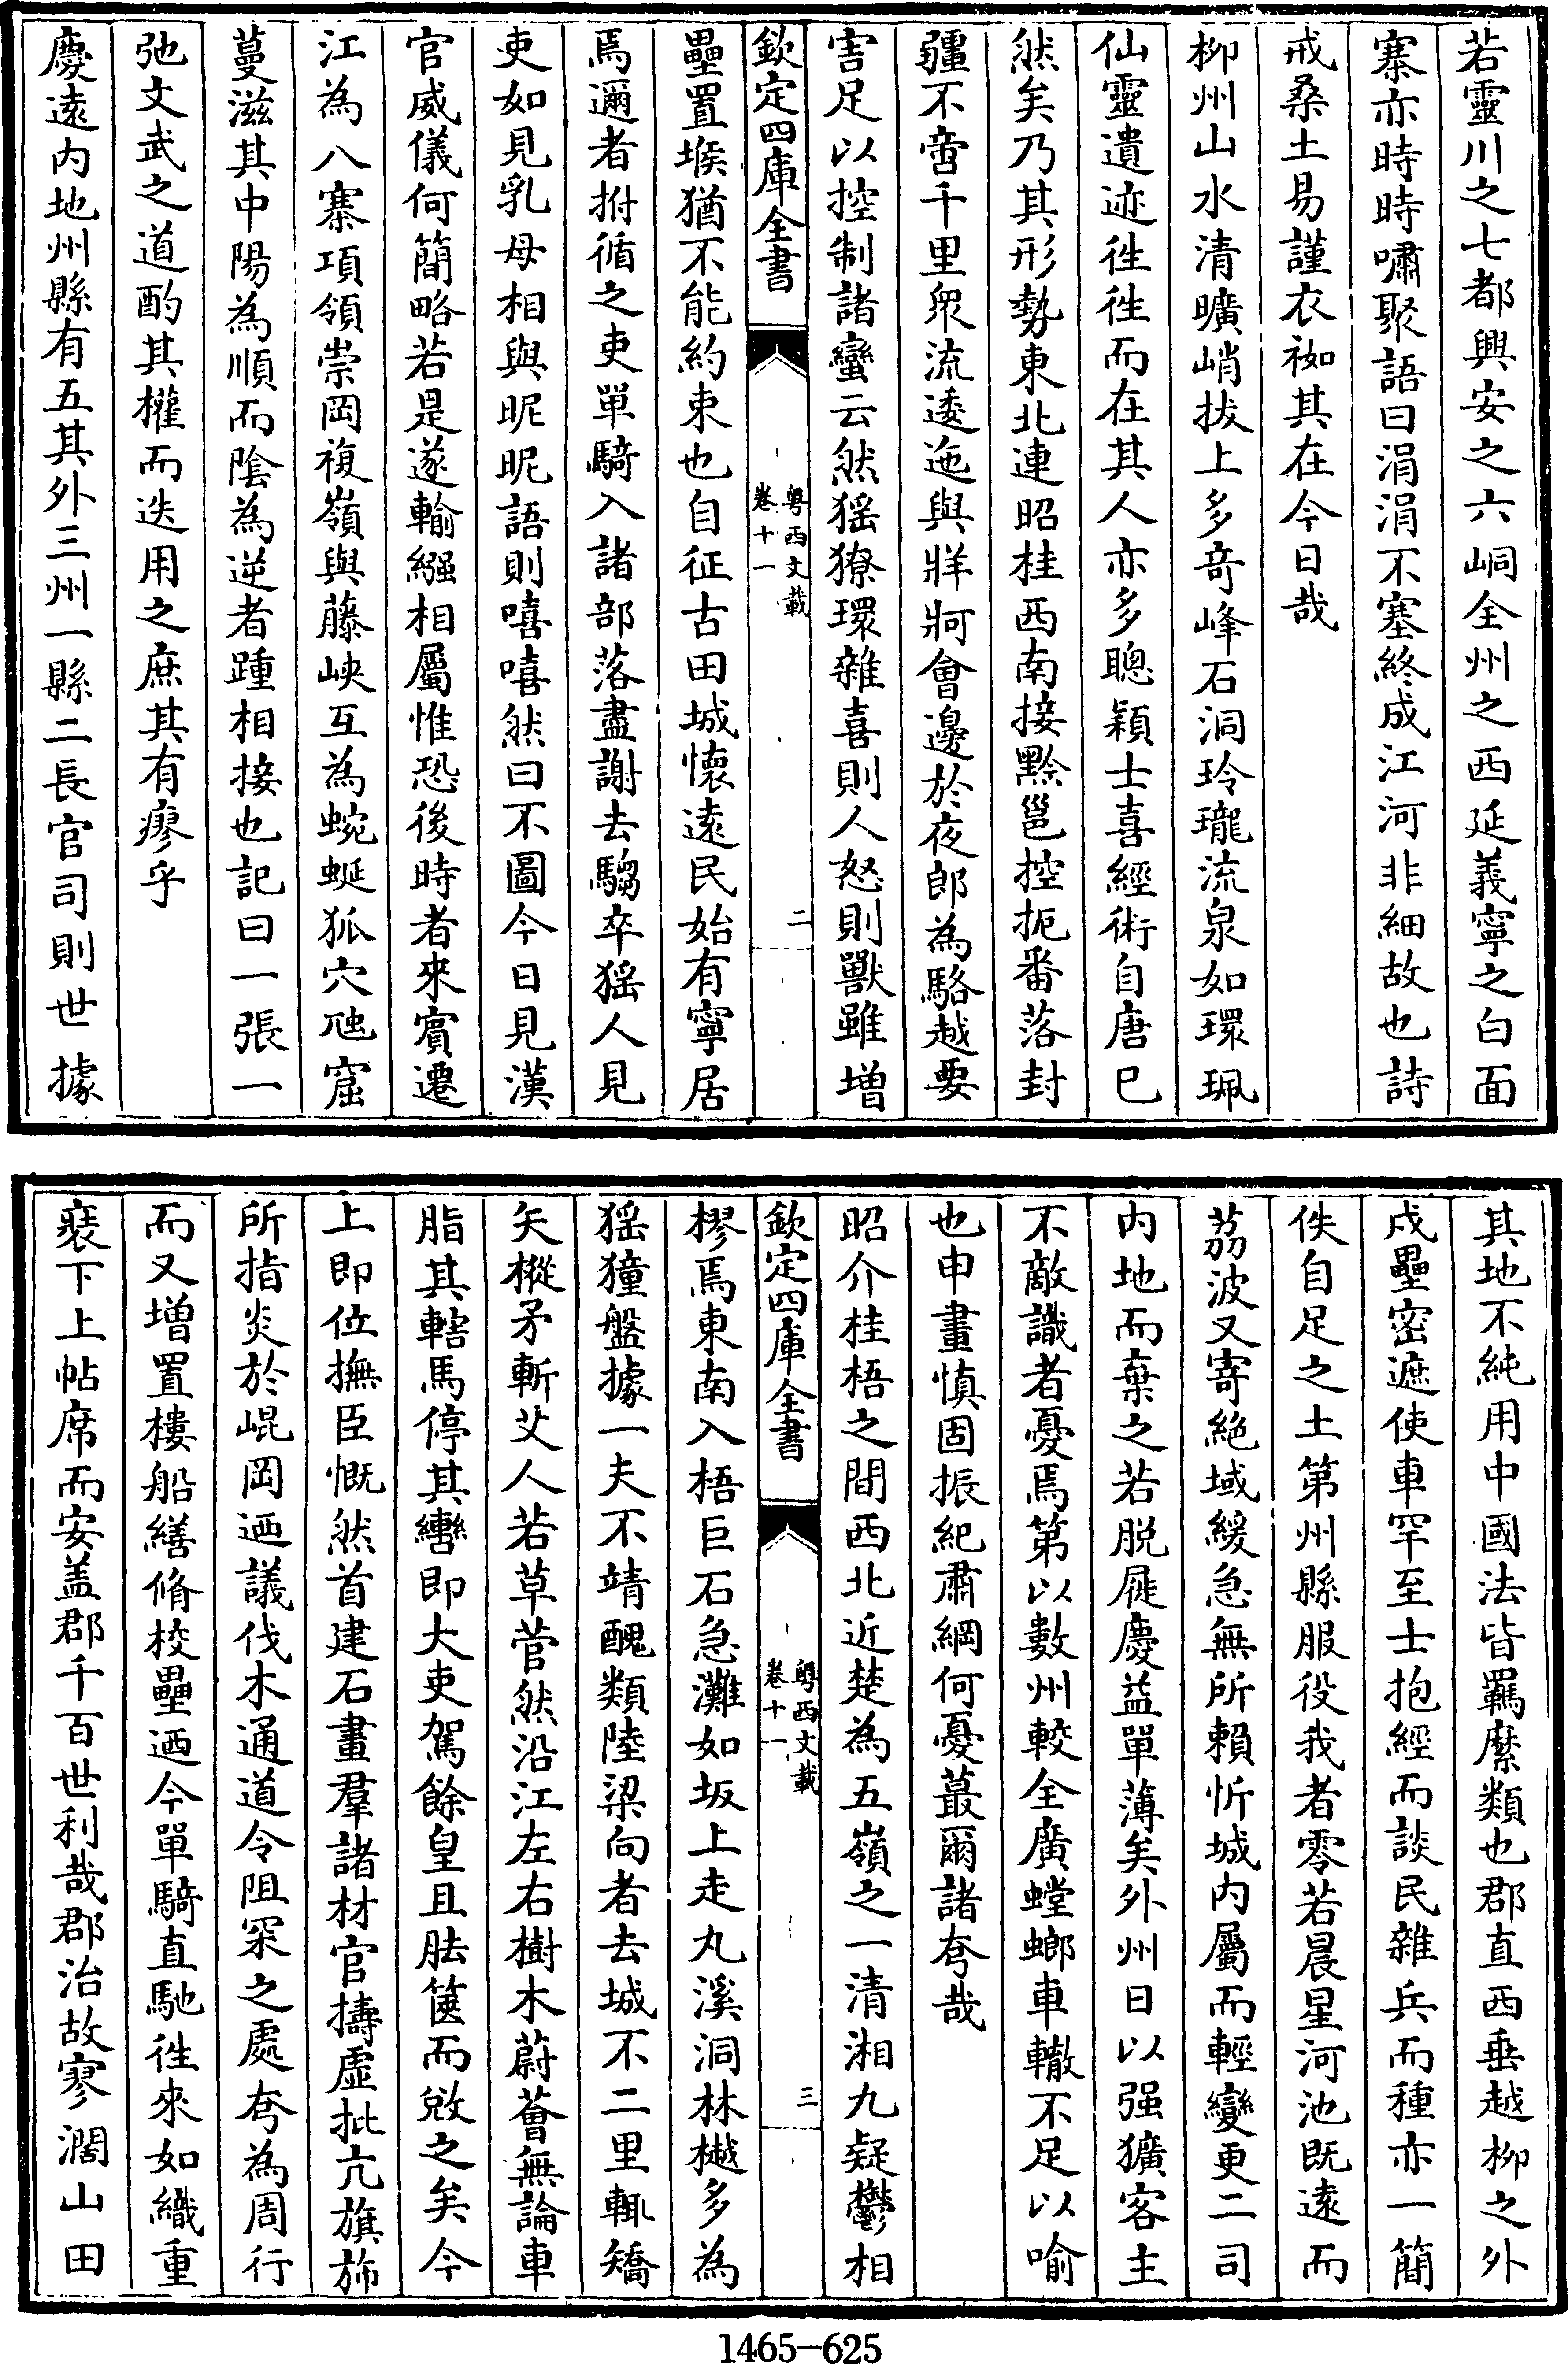 若靈川之七都興安之六峒全州之西延義寧之白面
寨亦時時嘯聚語曰涓涓不塞終成江河非細故也詩
戒桑土易謹衣袽其在今日哉
柳州山水清曠峭拔上多奇峰石洞玲瓏流泉如環珮
仙靈遺迹徃徃而在其人亦多聰穎士喜經術自唐已
然矣乃其形勢東北連昭桂西南接黔邕控扼番落封
疆不啻千里衆流逶迤與牂牁會邊於夜郎為駱越要
害足以控制諸蠻云然猺獠環雜喜則人怒則獸雖增
欽定四庫全書
粤西文載
卷十一
二
壘置堠猶不能約束也自征古田城懷遠民始有寧居
焉邇者拊循之吏單騎入諸部落盡謝去騶卒猺人見
吏如見乳母相與昵昵語則嘻嘻然曰不圖今日見漢
官威儀何簡略若是遂輸繦相屬惟恐後時者來賓遷
江為八寨項領崇岡複嶺與藤峽互為蜿蜒狐穴虺窟
蔓滋其中陽為順而陰為逆者踵相接也記曰一張一
弛文武之道酌其權而迭用之庶其有瘳乎
慶遠内地州縣有五其外三州一縣二長官司則世據
其地不純用中國法皆羈縻類也郡直西垂越柳之外
戍壘密遮使車罕至士抱經而談民雜兵而種亦一簡
佚自足之土第州縣服役我者零若晨星河池既遠而
荔波又寄絶域緩急無所賴忻城内屬而輕變更二司
内地而棄之若脱屣慶益單薄矣外州日以强獷客主
不敵識者憂焉第以數州較全廣螳螂車轍不足以喻
也申畫慎固振紀肅綱何憂蕞爾諸夸哉
昭介桂梧之間西北近楚為五嶺之一清湘九疑鬱相
欽定四庫全書
粤西文載
卷十一
三
樛焉東南入梧巨石急灘如坂上走丸溪洞林樾多為
猺獞盤據一夫不靖醜類陸梁向者去城不二里輒矯
矢摐矛斬艾人若草菅然沿江左右樹木蔚薈無論車
脂其轄馬停其轡即大吏駕餘皇且胠篋而敓之矣今
上即位撫臣慨然首建石畫羣諸材官擣虛批亢旗斾
所指炎於崐岡迺議伐木通道令阻罙之處夸為周行
而又增置樓船繕脩校壘迺今單騎直馳徃來如織重
裘下上帖席而安盖郡千百世利哉郡治故寥濶山田
1465-625